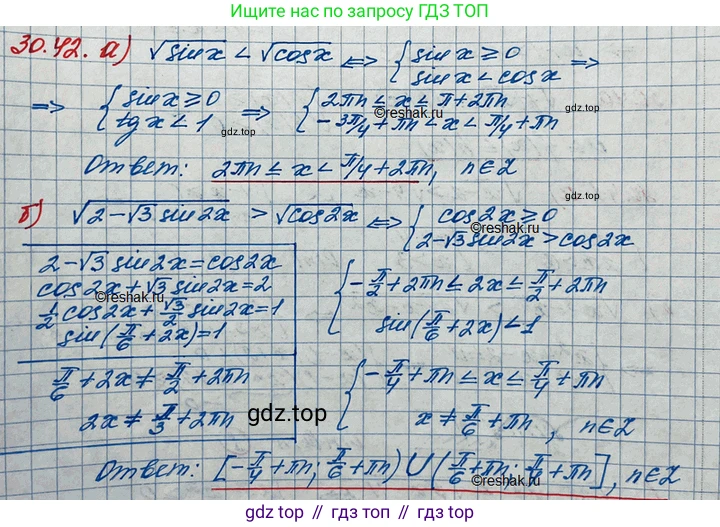 Ищите нас по запросу ГДЗ ТОП
30.42. а) √sin x < √cos x ⟺ { sin x ≥ 0
sin x < cos x ⟹
⟹ { sin x ≥ 0
tg x < 1 ⟹ { 2πn ≤ x ≤ π+2πn
-3π/4 + πn < x < π/4 + πn
gdz.top
©reshak.ru
gdz.top
Ответ: 2πn ≤ x < π/4 + 2πn, n∈Z
б) √2-√3 sin2x > √cos2x ⟺ { cos2x ≥ 0
2-√3 sin2x > cos2x
©reshak.ru
2-√3 sin2x = cos2x
cos2x + √3 sin2x = 2
©reshak.ru
1/2 cos2x + √3/2 sin2x = 1
sin(π/6 + 2x) = 1
π/6 + 2x ≠ π/2 + 2πn
2x ≠ π/3 + 2πn
gdz.top
{ -π/2 + 2πn ≤ 2x ≤ π/2 + 2πn
sin(π/6 + 2x) < 1
{ -π/4 + πn ≤ x ≤ π/4 + πn
x ≠ π/6 + πn, n∈Z
Ответ: [-π/4 + πn; π/6 + πn) ∪ (π/6 + πn; π/4 + πn], n∈Z
©reshak.ru
gdz.top // гдз.топ // gdz.top // гдз.топ